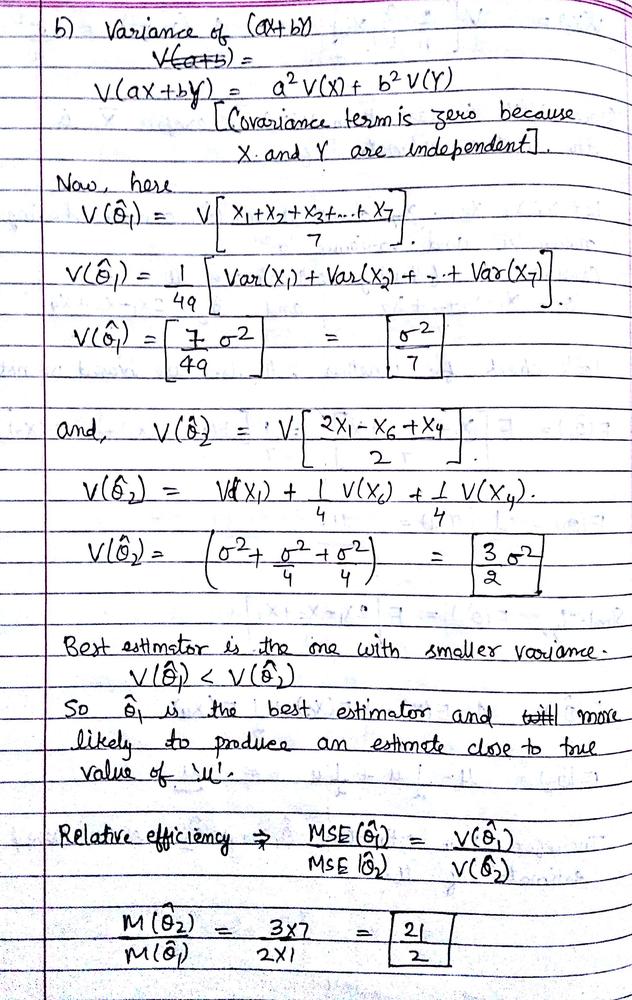 b) Variance of (aX+bY)
V(a+b) =
V(aX+bY) = a² V(X) + b² V(Y)
[Covariance term is zero because
X and Y are independent].
Now, here
V(θ̂₁) = V[(X₁+X₂+X₃+...+X₇)/7].
V(θ̂₁) = 1/49 [Var(X₁) + Var(X₂) + -.+ Var(X₇)].
V(θ̂₁) = [7/49 σ²] = σ²/7
and, V(θ̂₂) = V[(2X₁-X₆+X₄)/2].
V(θ̂₂) = V(X₁) + 1/4 V(X₆) + 1/4 V(X₄).
V(θ̂₂) = (σ² + σ²/4 + σ²/4) = 3/2 σ²
Best estimator is the one with smaller variance.
V(θ̂₁) < V(θ̂₂)
So θ̂₁ is the best estimator and will more
likely to produce an estimate close to true
value of 'μ'.
Relative efficiency ⇒ MSE(θ̂₁)/MSE(θ̂₂) = V(θ̂₁)/V(θ̂₂)
M(θ̂₂)/M(θ̂₁) = 3×7/2×1 = 21/2